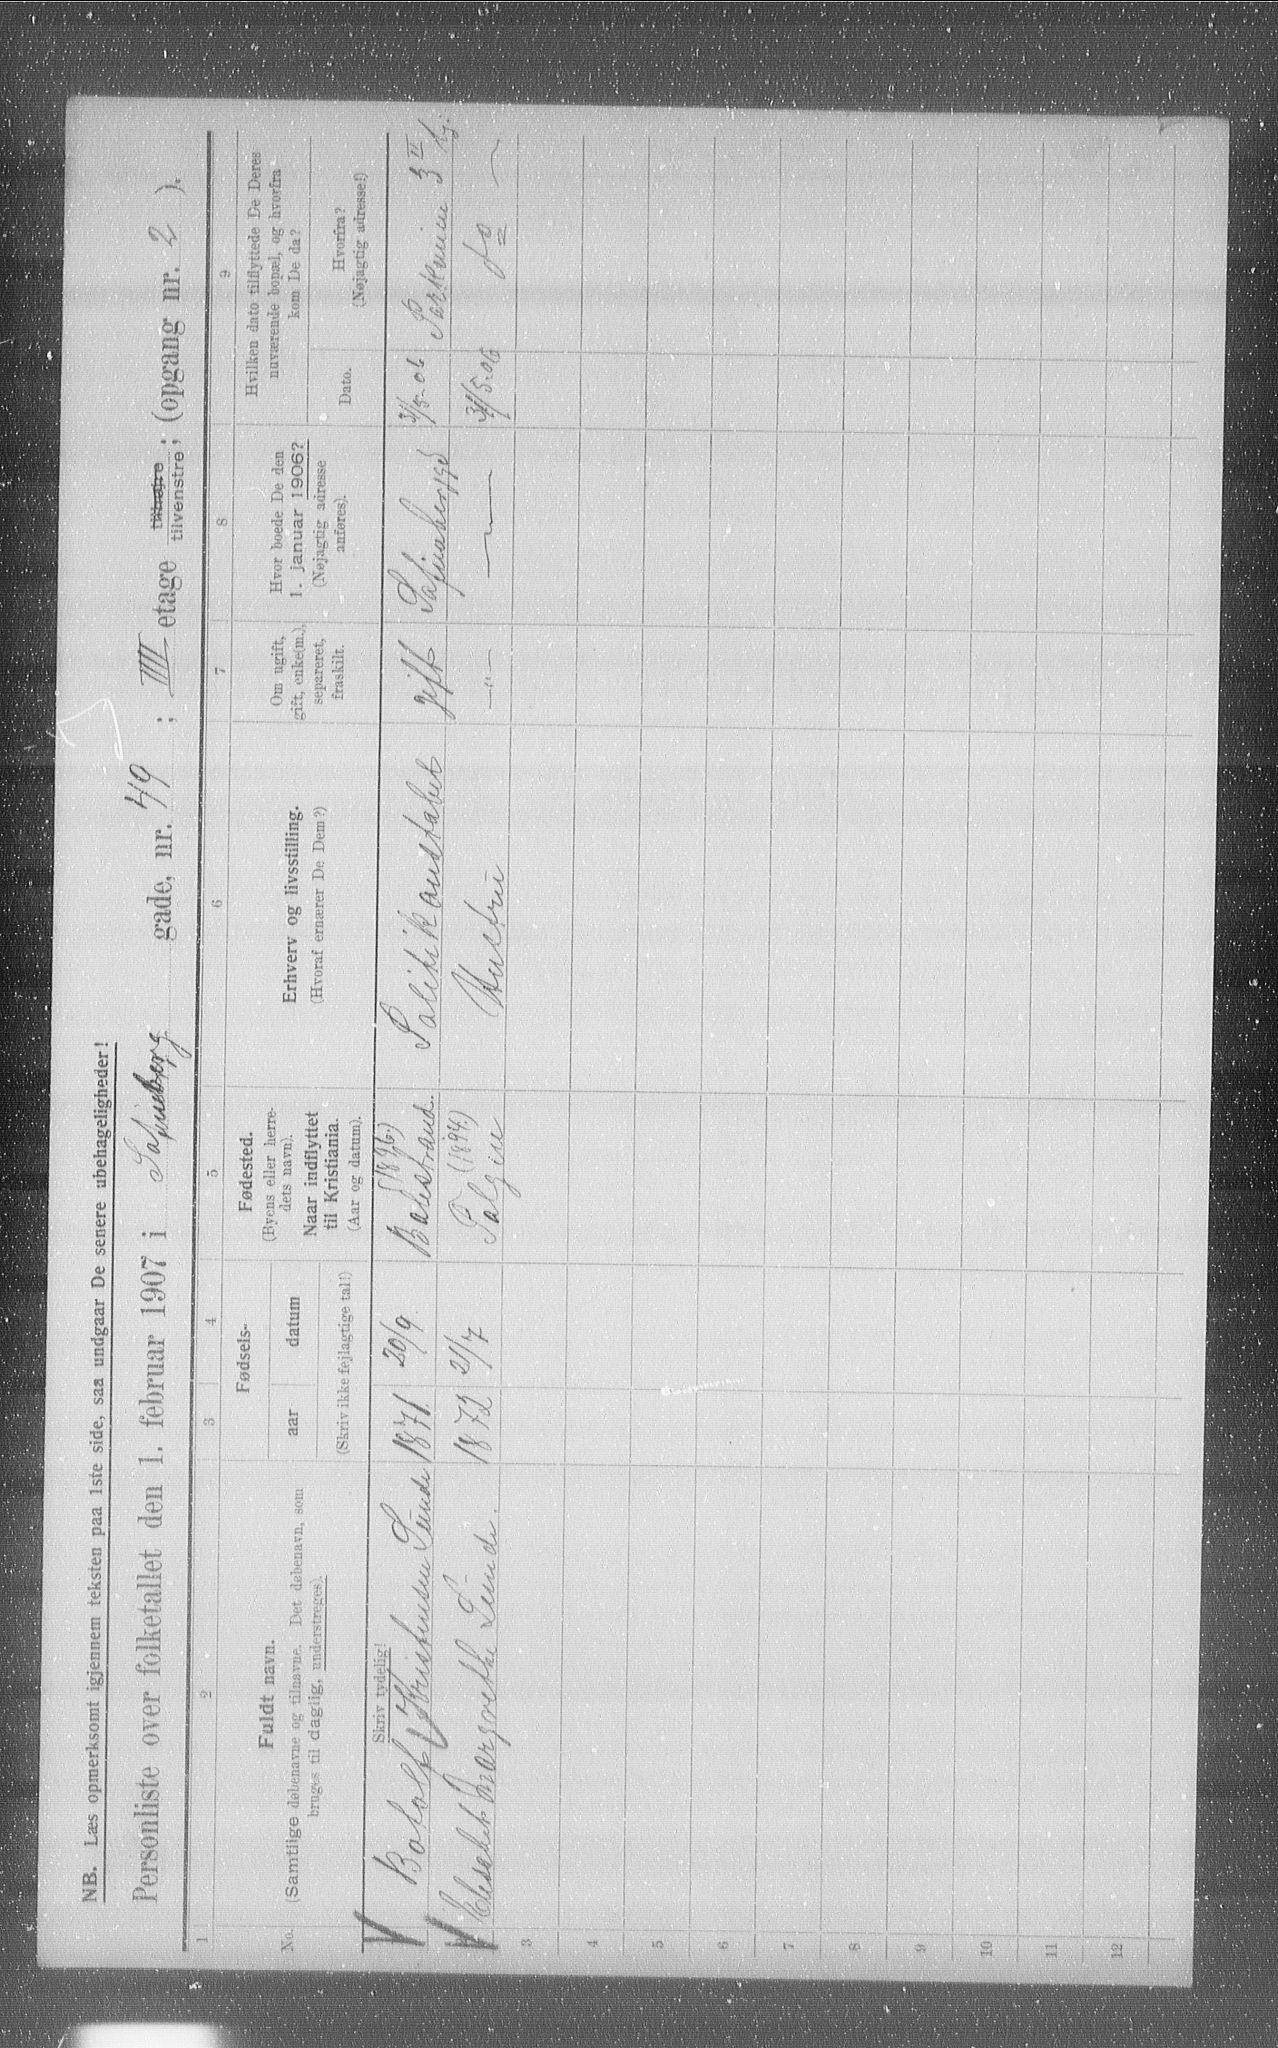 NB. Læs opmerksomt igjennem teksten paa 1ste side, saa undgaar De senere ubehageligheder!
Personliste over folketallet den 1. februar 1907 i Sofienberg gade, nr. 49 ; IIII etage tilhøjre ; tilvenstre; (opgang nr. 2 ).
1 2 3 4 5 6 7 8 9
No.
Fuldt navn.
(Samtlige døbenavne og tilnavne. Det døbenavn, som
bruges til daglig, understreges).
Fødsels-
aar
datum
(Skriv ikke fejlagtige tal!)
Fødested.
(Byens eller herre-
dets navn).
Naar indflyttet
til Kristiania.
(Aar og datum).
Erhverv og livsstilling.
(Hvoraf ernærer De Dem?)
Om ugift,
gift, enke(m.),
separeret,
fraskilt.
Hvor boede De den
1. januar 1906?
(Nøjagtig adresse
anføres).
Hvilken dato tilflyttede De Deres
nuværende bopæl, og hvorfra
kom De da?
Dato.
Hvorfra?
(Nøjagtig adresse!)
Skriv tydelig!
Botolf Kristensen Sunde 1871. 20/9. (1896.) Balestrand. Politikonstabel gift 3/5-06
Elisabet Margrethe Sunde. 1872 21/7 (1894.) Hustru —"— —"— 3/5.06 do
3
4
5
6
7
8
9
10
11
12